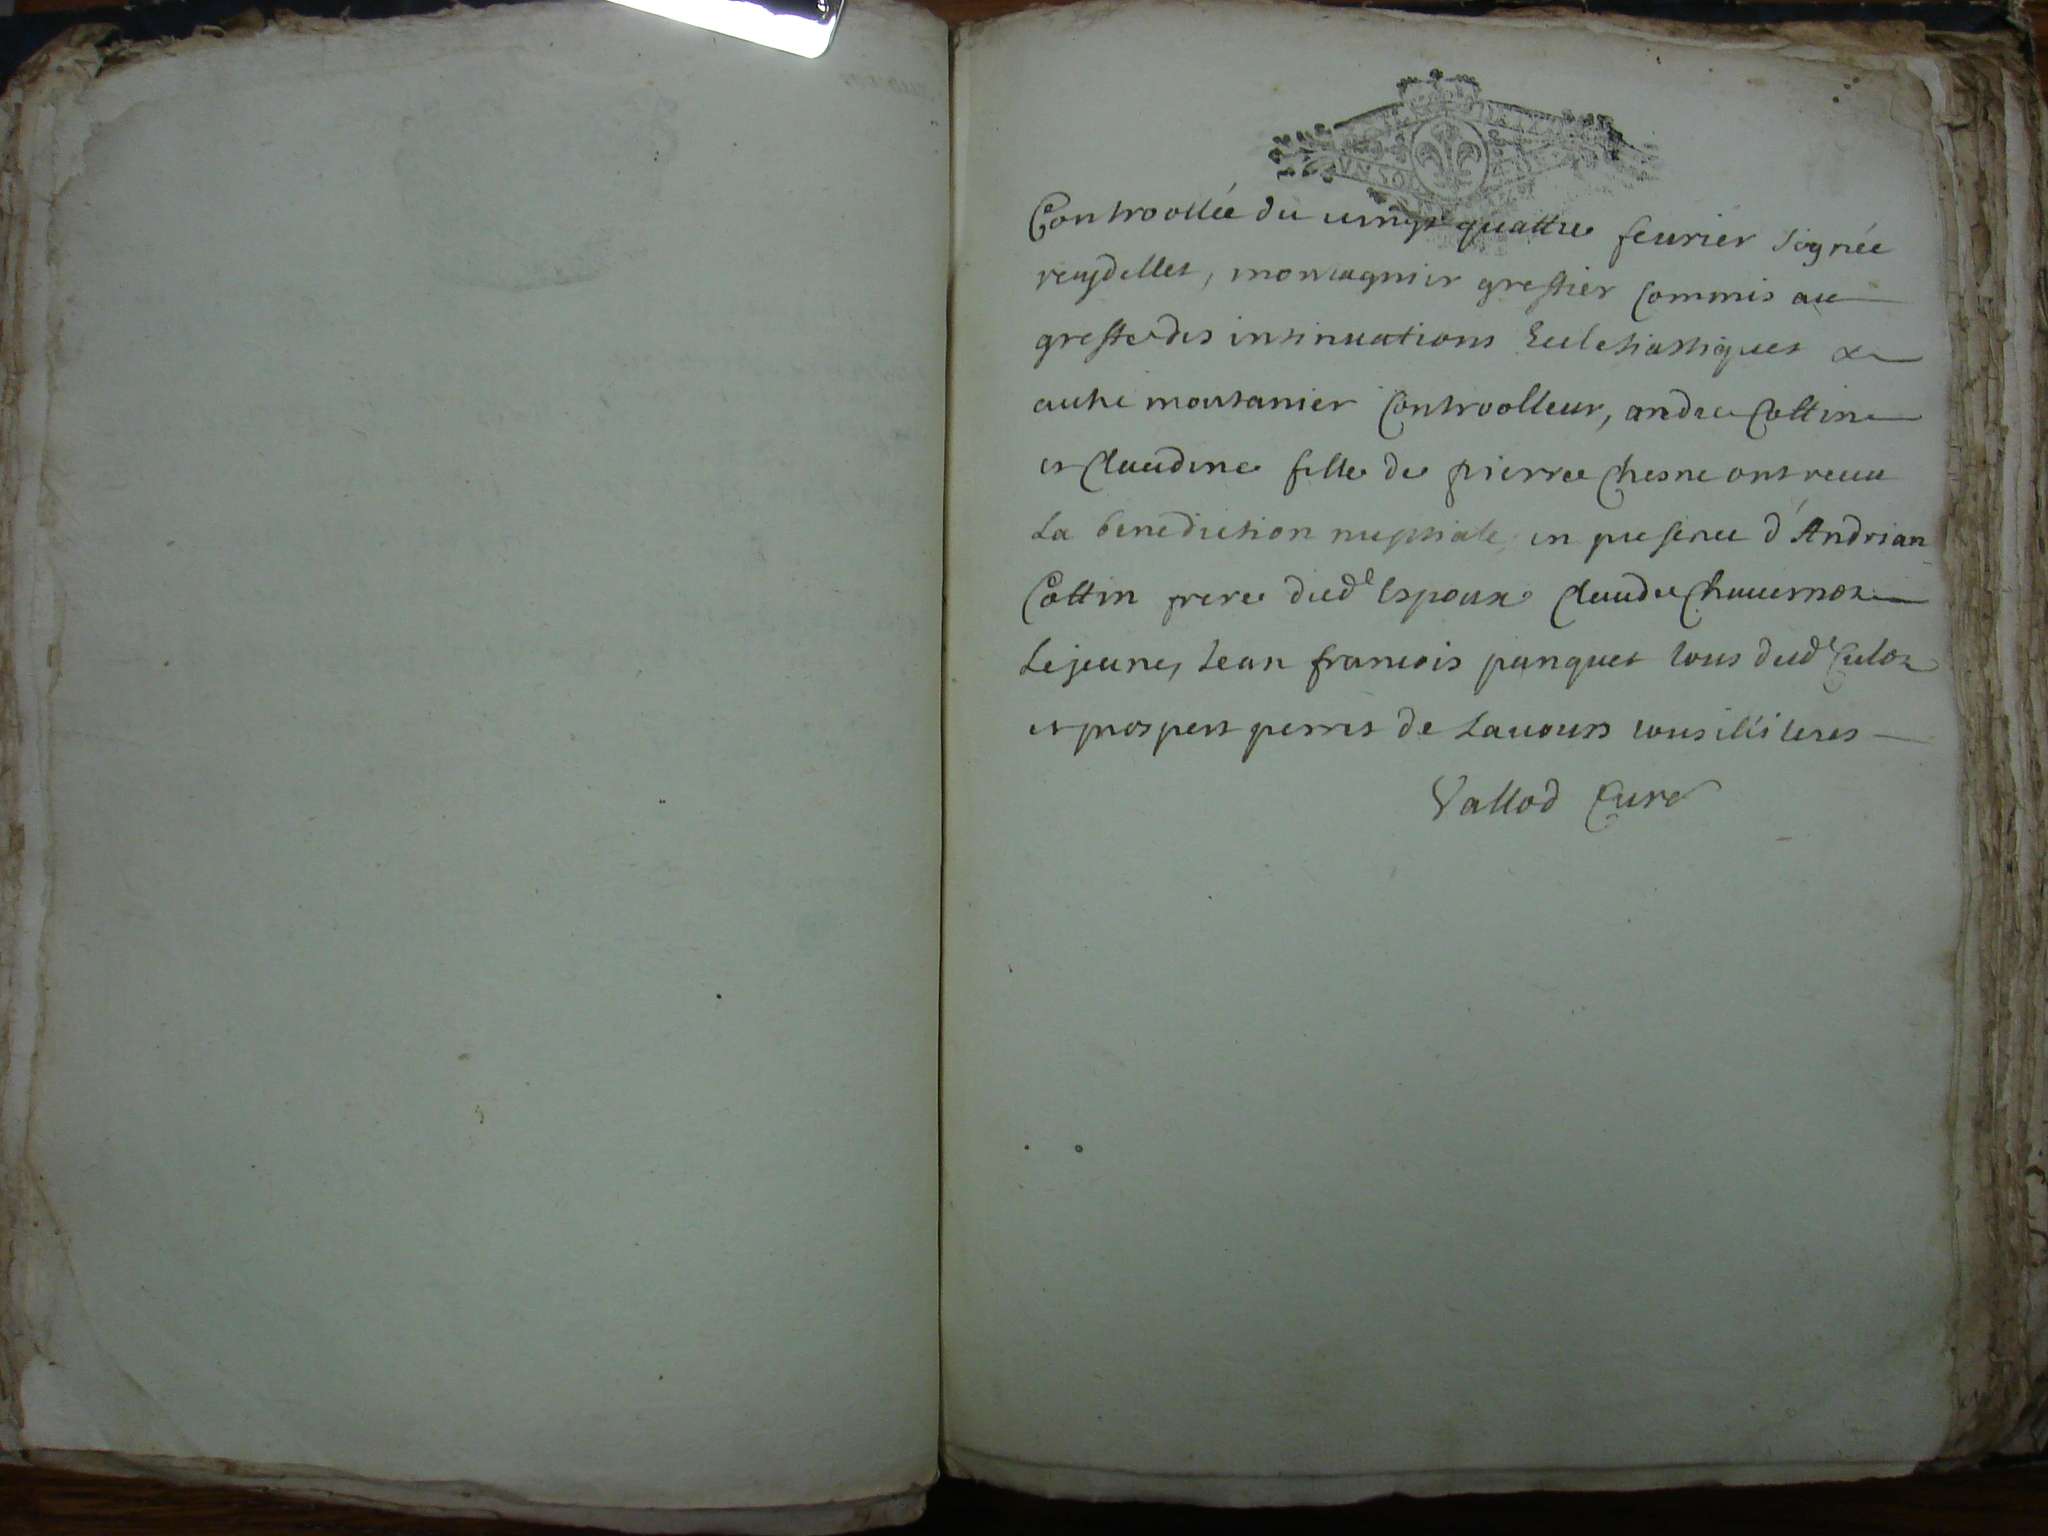 UN SOL
Controollée du vingt quattre feurier signée
reydellet, montagnier greffier Commis au
greffe des insinuations Ecclesiastiques &
autre montanier Controolleur, andre Cottin
et Claudine fille de pierre Chesne ont receu
La benediction nuptiale en presence d'Andrian
Cottin frere dud.^t Espoux Claude Chauernoz
Lejeune, Jean francois punquet tous dud.^t Culoz
et prospert perret de Lauours tous illiteres
Vallod Curé